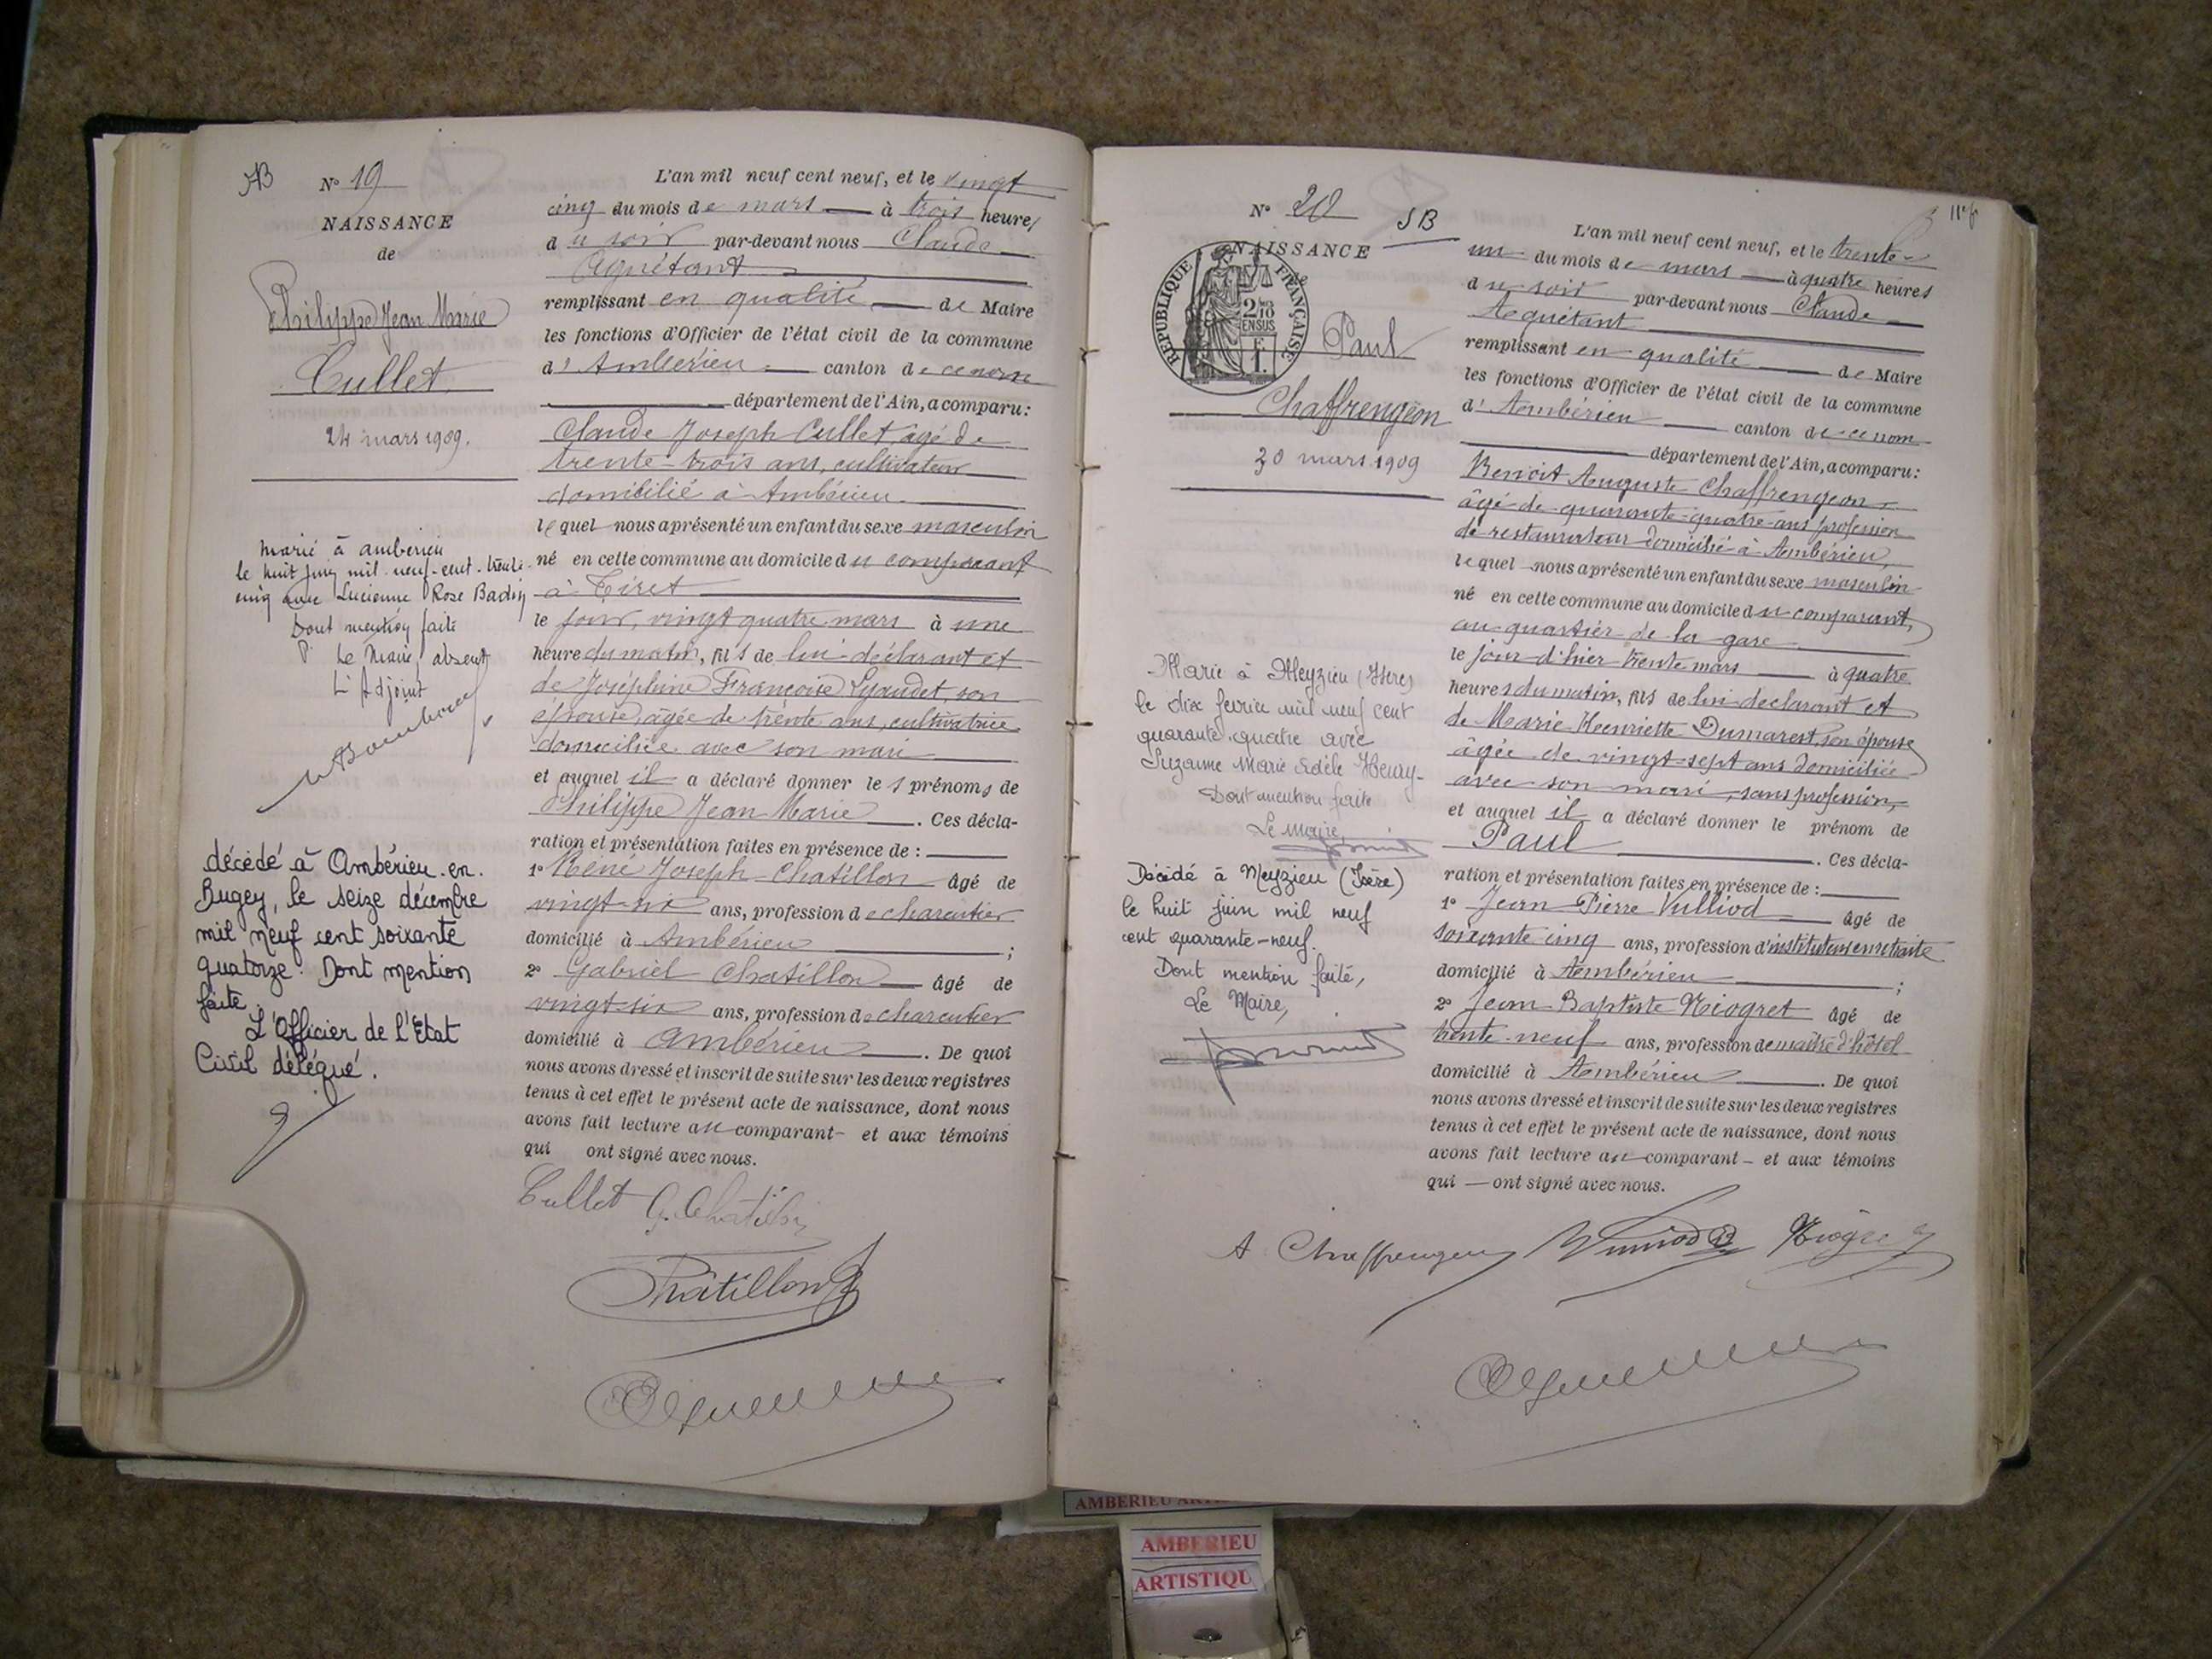 AB
N° 19
NAISSANCE
de
Philippe Jean Marie
Cullet
24 mars 1909.
marié à amberieu
le huit juin mil neuf-cent-trente-
cinq avec Lucienne Rose Badin
Dont mention faite
P. Le Maire absent
L'Adjoint
décédé à Ambérieu-en-
Bugey, le seize décembre
mil neuf cent soixante
quatorze. Dont mention
faite.
L'Officier de l'Etat
Civil délégué.
L'an mil neuf cent neuf, et le vingt
cinq du mois de mars à trois heures
du soir par-devant nous Claude
Aguétant
remplissant en qualité de Maire
les fonctions d'Officier de l'état civil de la commune
d'Ambérieu canton de ce nom
département de l'Ain, a comparu:
Claude Joseph Cullet, âgé de
trente-trois ans, cultivateur
domicilié à Ambérieu
lequel nous a présenté un enfant du sexe masculin
né en cette commune au domicile du comparant
à Tiret
le jour, vingt quatre mars à une
heure du matin, fils de lui déclarant et
de Joséphine Françoise Gyaudet, son
épouse, âgée de trente ans, cultivatrice
domiciliée avec son mari
et auquel il a déclaré donner les prénoms de
Philippe Jean Marie. Ces décla-
ration et présentation faites en présence de :
1° Réné Joseph Chatillon âgé de
vingt-six ans, profession de charcutier
domicilié à Ambérieu ;
2° Gabriel Chatillon âgé de
vingt-six ans, profession de charcutier
domicilié à Ambérieu. De quoi
nous avons dressé et inscrit de suite sur les deux registres
tenus à cet effet le présent acte de naissance, dont nous
avons fait lecture au comparant et aux témoins
qui ont signé avec nous.
Cullet G. Chatillon
Châtillon
N° 20 SB
NAISSANCE
RÉPUBLIQUE FRANÇAISE
2/10
EN SUS
F
1.
Paul
Chaffrengeon
30 mars 1909
Marié à Meyzieu (Isère)
le dix février mil neuf cent
quarante quatre avec
Suzanne Marie Adèle Heury
Dont mention faite
Le Maire,
Décédé à Meyzieu (Isère)
le huit juin mil neuf
cent quarante-neuf.
Dont mention faite,
Le Maire,
L'an mil neuf cent neuf, et le trente
un du mois de mars à quatre heures
du soir par-devant nous Claude
Aguétant
remplissant en qualité de Maire
les fonctions d'Officier de l'état civil de la commune
d'Ambérieu canton de ce nom
département de l'Ain, a comparu:
Benoit Auguste Chaffrengeon
âgé de quarante-quatre ans profession
de restaurateur domicilié à Ambérieu,
lequel nous a présenté un enfant du sexe masculin
né en cette commune au domicile du comparant,
au quartier de la gare
le jour d'hier trente mars à quatre
heures du matin, fils de lui declarant et
de Marie Henriette Dumarest, son épouse
âgée de vingt-sept ans domiciliée
avec son mari, sans profession,
et auquel il a déclaré donner le prénom de
Paul. Ces décla-
ration et présentation faites en présence de :
1° Jean Pierre Vulliod âgé de
soixante cinq ans, profession d'instituteur en retraite
domicilié à Ambérieu ;
2° Jean Baptiste Niogret âgé de
trente-neuf ans, profession de maître d'hôtel
domicilié à Ambérieu. De quoi
nous avons dressé et inscrit de suite sur les deux registres
tenus à cet effet le présent acte de naissance, dont nous
avons fait lecture au comparant et aux témoins
qui ont signé avec nous.
A Chaffrengeon Vulliod Niogret
AMBERIEU
AMBERIEU
ARTISTIQU